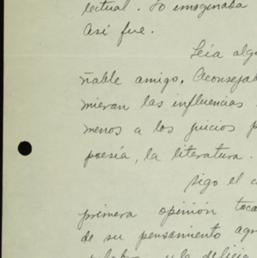 lectual. Yo imaginaba
Así fue.
Leía algu
ñable amigo. Aconsejab
mieran las influencias
menos a los juicios p
poesía, la literatura.
Sigo el c
primera opinión toca
de su pensamiento agu
y la delicia